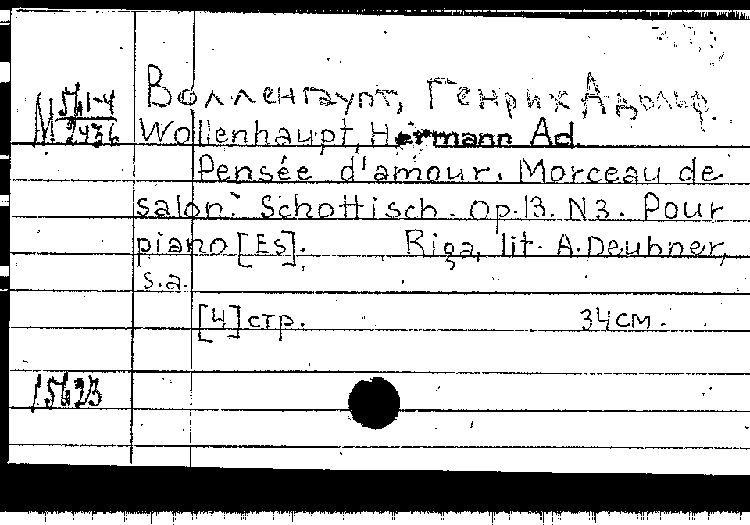 Волленгаупт, Генрих Адольф.
М 561-4
2436
Wollenhaupt, Hermann Ad.
Pensée d'amour. Morceau de
salon. Schottisch. Op.13. N3. Pour
piano [Es]. Riga, lit. A. Deubner,
s.a.
[4] стр. 34 см.
15623